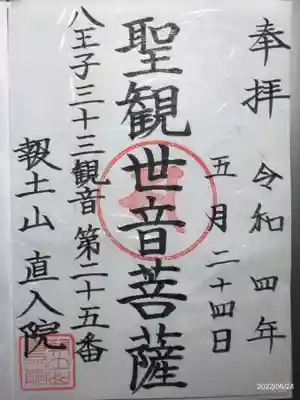 奉拝
令和四年
五月二十四日
聖観世音菩薩
八王子三十三観音 第二十五番
報土山 直入院
2022/06/24